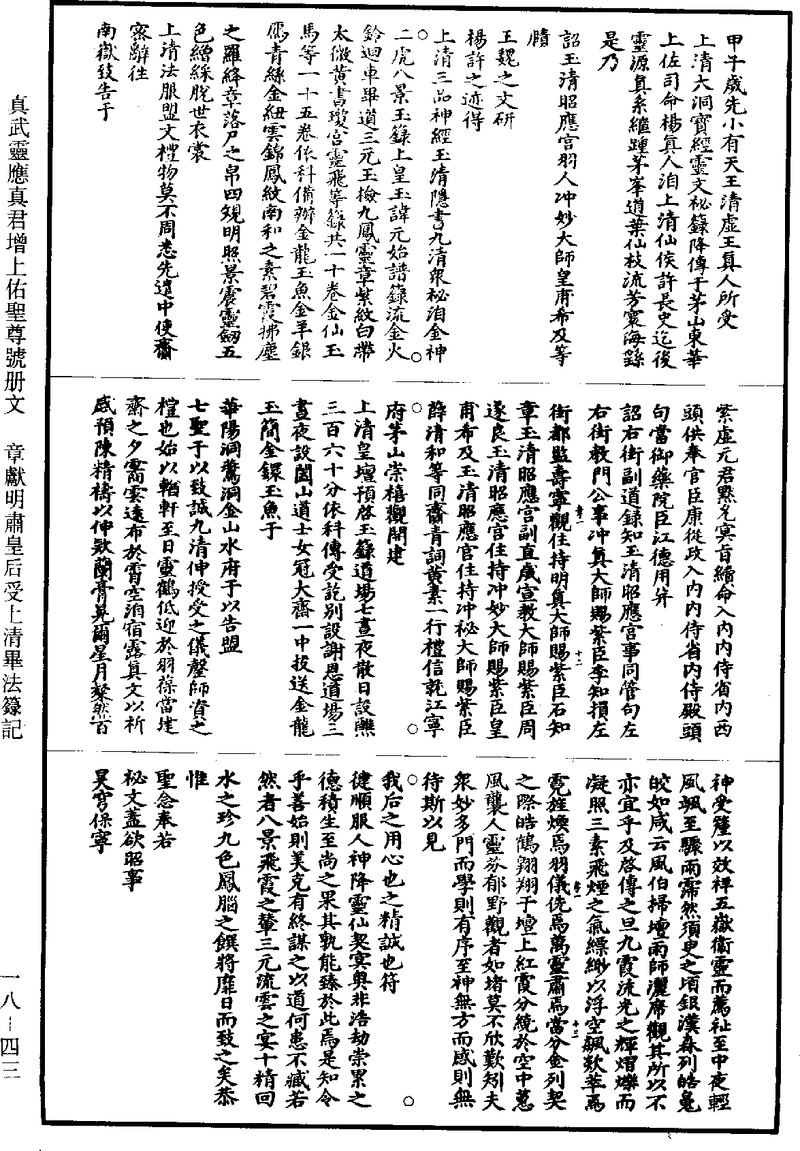 甲子歲先小有天王清虛王真人所受
上清大洞寶經靈文秘籙降傳于茅山東華
上佐司命楊真人洎上清仙侯許長史迄後
靈源真系繼踵茅峯道葉仙枝流芳寰海繇
是乃
詔玉清昭應宮羽人冲妙大師皇甫希及等
賾
王魏之文研
楊許之迹得
上清三品神經玉清隱書九清衆秘洎金神
二虎八景玉籙上皇玉諱元始譜籙流金火
鈴迴車畢道三元玉檢九鳳靈章紫紋白帶
太微黃書瓊宮靈飛等籙共一十卷金仙玉
馬等一十五卷依科備辦金龍玉魚金羊銀
鴈青絲金紐雲錦鳳紋南和之素碧霞拂塵
之羅絳章落尸之帛四規明照景震靈劒五
色繒綵脫世衣裳
上清法服盟文禮物莫不周悉先遣中使齎
宻辭往
南嶽致告于
紫虛元君黙允冥肯續命入內內侍省內西
頭供奉官臣康從政入內內侍省內侍殿頭
句當御藥院臣江德用并
詔右街副道錄知玉清昭應宮事同管句左
右街教門公事冲真大師賜紫臣李知損左
街都監壽寧觀住持明真大師賜紫臣石知
章玉清昭應宮副直歲宣教大師賜紫臣周
遂良玉清昭應宮住持冲妙大師賜紫臣皇
甫希及玉清昭應宮住持冲秘大師賜紫臣
薛清和等同齎青詞黃素一行禮信乾江寧
府茅山崇禧觀開建
上清皇壇預啓玉籙道場七晝夜散日設醮
三百六十分依科傳受訖別設謝恩道場三
晝夜設闔山道士女冠大齋一中投送金龍
玉簡金鐶玉魚于
華陽洞鶯洞金山水府于以告盟
七聖于以致誠九清伸授受之儀罄師資之
禮也始以輶軒至日靈鶴低迎於羽葆當建
齋之夕喬雲遠布於霄空洎宿露真文以祈
感預陳精禱以伸欵蘭膏晃爾星月粲然百
神受釐以效祥五嶽衞靈而薦祉至中夜輕
風颯至驟雨霈然須臾之頃銀漢森列皓兔
皎如咸云風伯掃壇雨師灑席觀其所以不
亦宜乎及啓傳之旦九霞流光之輝熠爍而
凝照三素飛煙之氣縹緲以浮空颷欻萃焉
霓旌煥焉羽儀侁焉萬靈肅焉當分金列契
之際皓鶴翺翔于壇上紅霞分繞於空中蔥
風襲人靈芬郁野觀者如堵莫不欣歎矧夫
衆妙多門而學則有序至神無方而感則無
待斯以見
我后之用心也之精誠也符
健順服人神降靈仙契冥奧非浩劫崇累之
德積生至尚之果其孰能臻於此焉是知令
乎善始則美克有終謀之以道何患不臧若
然者八景飛霞之輦三元流雲之宴十精回
水之珍九色鳳腦之饌將靡日而致之矣恭
惟
聖念奉若
秘文蓋欲昭事
昊穹保寧
真武靈應真君增上佑聖尊號册文　章獻明肅皇后受上清畢法籙記
一八－四三